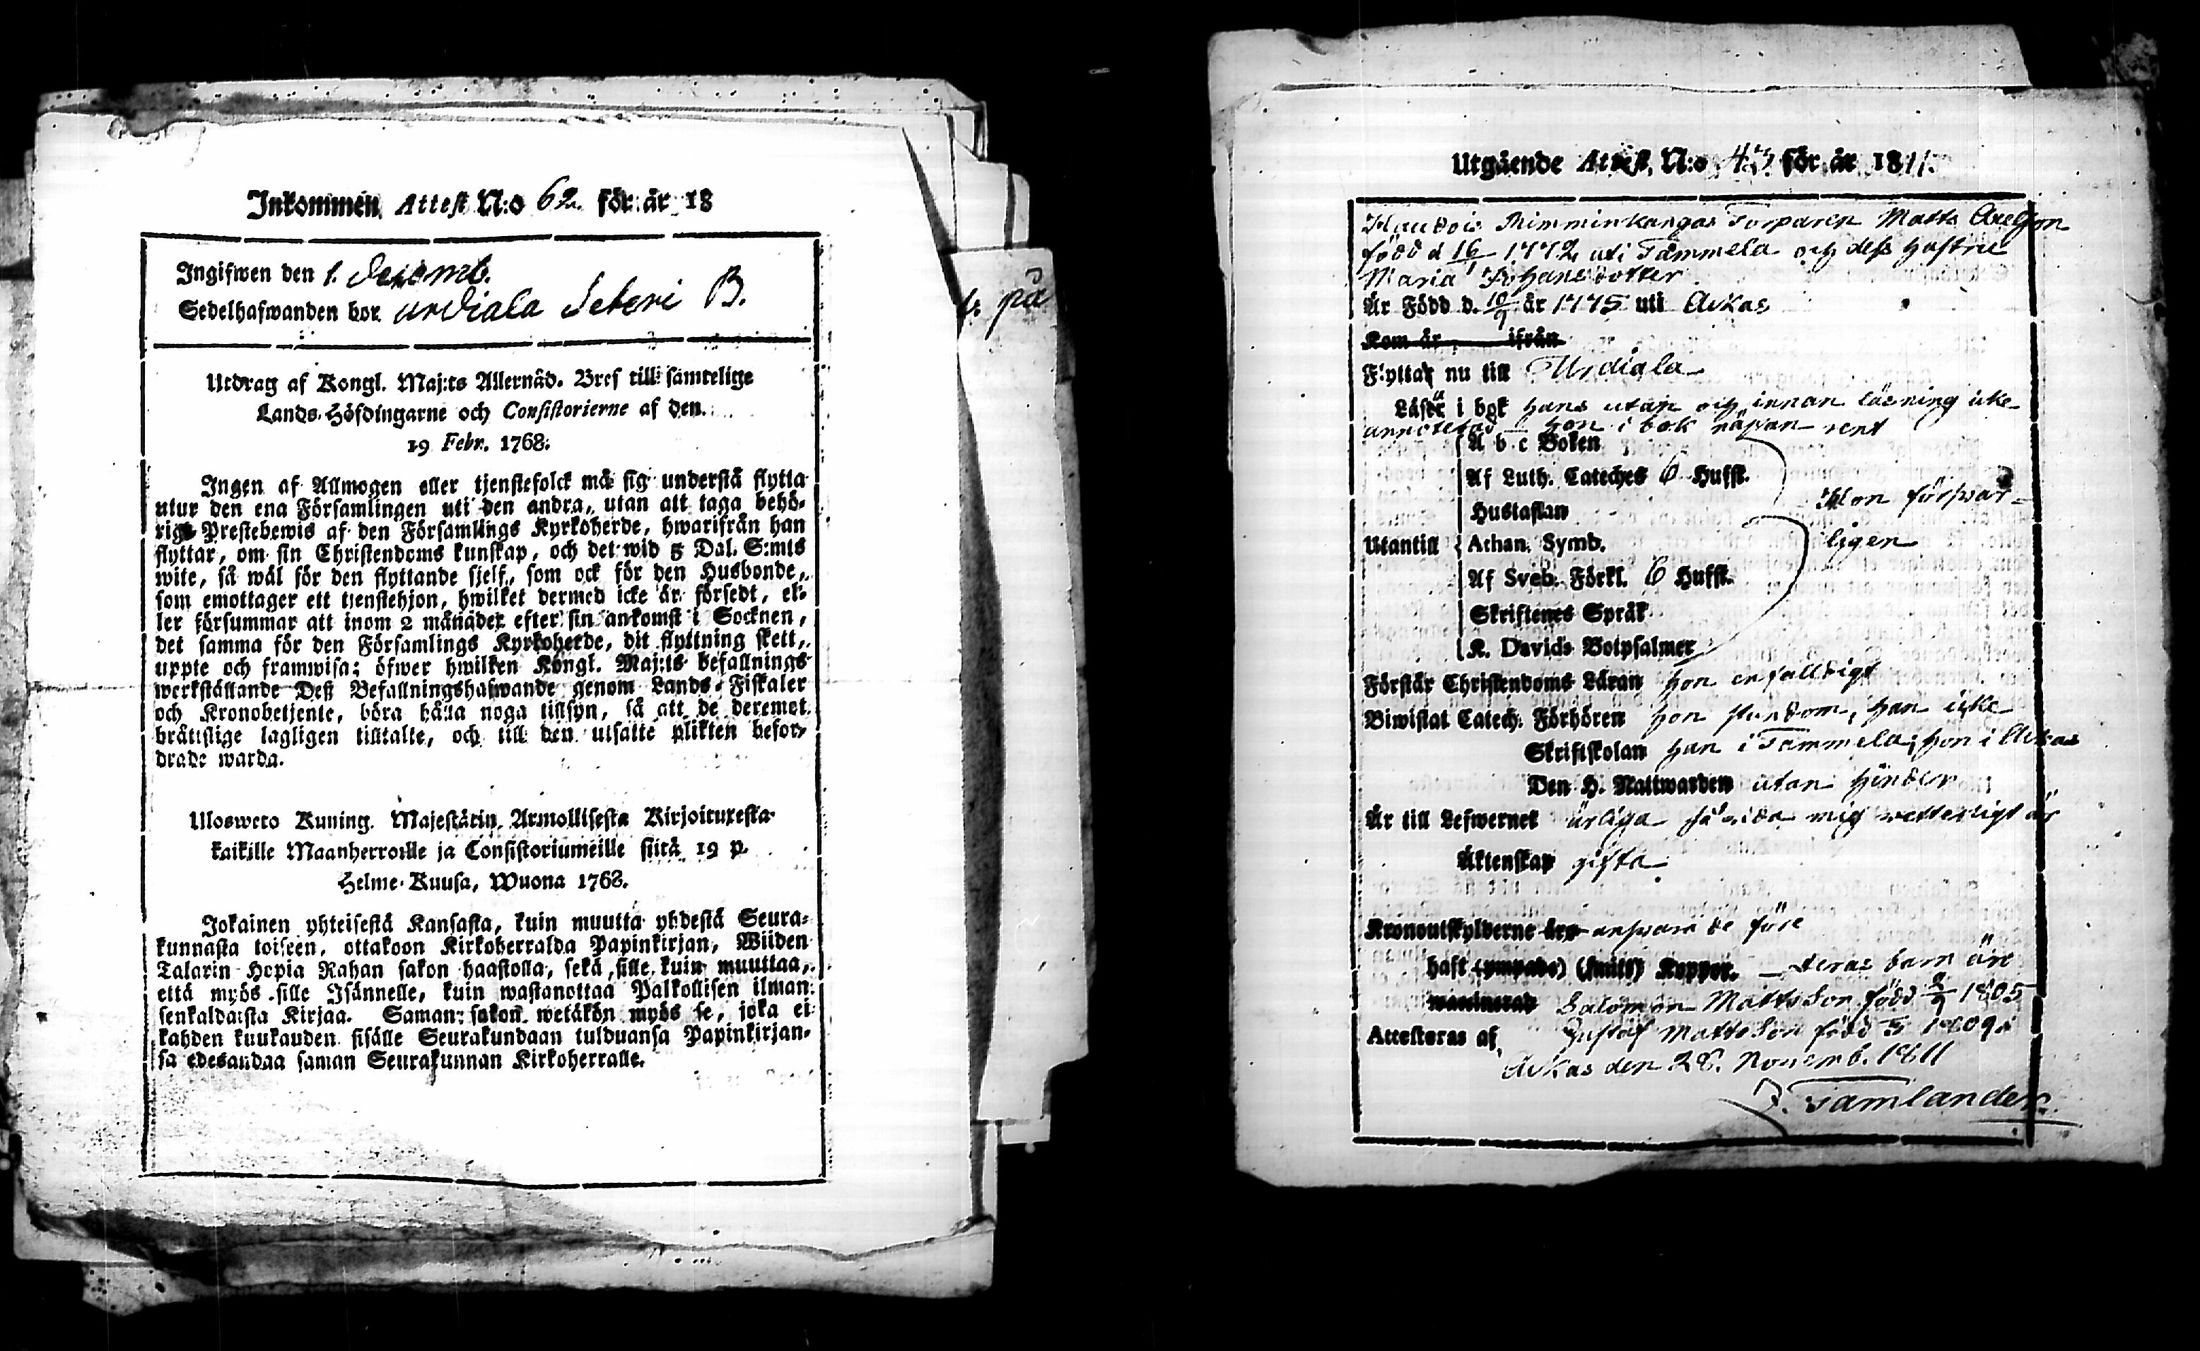 Inkommen Attest N:o 62 för år 18
Ingifwen den 1. Decemb.
Sedelhafwanden bor urdiala Seteri B.
Utdrag af Kongl. Maj:ts Allernåd. Bref till samtelige
Lands-Höfdingarne och Consistorierne af den
19 Febr. 1768.
Ingen af Allmogen eller tjenstefolck må sig understå flytta
utur den ena Församlingen uti den andra, utan att taga behö-
rigt Prestebewis af den Församlings Kyrkoherde, hwarifrån han
flyttar, om sin Christendoms kunskap, och det wid 5 Dal. S:mts
wite, så wäl för den flyttande sjelf, som ock för den Husbonde,
som emottager ett tjenstehjon, hwilket dermed icke är försedt, el-
ler försummar att inom 2 månader efter sin ankomst i Socknen,
det samma för den Församlings Kyrkoherde, dit flyttning skett,
uppte och framwisa; öfwer hwilken Kongl. Maj:ts befallnings
werkställande Dess Befallningshafwande genom Lands-Fiskaler
och Kronobetjente, böra hålla noga tillsyn, så att de deremot
bråttslige lagligen tilltalte, och till den utsatte plikten befor-
drade warda.
Ulosweto Kuning. Majestätin Armollisesta Kirjoituxesta
kaikille Maanherroille ja Consistoriumeille siitä 19 p.
Helme-Kuusa, Wuona 1768.
Jokainen yhteisestä Kansasta, kuin muutta yhdestä Seura-
kunnasta toiseen, ottakoon Kirkoherralda Papinkirjan, Wiiden
Talarin Hopia Rahan sakon haastolla, sekä sille, kuin muuttaa,
että myös sille Isännelle, kuin wastanottaa Palkollisen ilman
senkaldaista Kirjaa. Saman sakon wetäkön myös se, joka ei
kahden kuukauden sisälle Seurakundaan tulduansa Papinkirjan-
sa edesandaa saman Seurakunnan Kirkoherralle.
på
Utgående Attest, N:o 43 för år 1811.
Rimminkangas Torparen Matts Axelsson
född d 16/1 1772 uti Tammela och dess hustru
Maria Johansdotter
Är Född d. 10/9 år 1775 uti Ackas
Kom år ifrån
Flyttar nu till Urdiala
Läser i bok hans utan och innan läsning icke
annoterad hon i bok näpan rent
A b c Boken
Af Luth. Cateches 6 Hufst.
Hustaflan
Utantill Athan. Symb.
Af Sveb. Förkl. 6 Hufst.
Skriftenes Språk
K. Davids Botpsalmer
Hon förswar-
ligen
Förstår Christendoms Läran hon enfalldigt
Biwistat Catech. Förhören hon stundom, han icke
Skriftskolan han i Tammela, hon i Ackas
Den H. Nattwarden utan hinder
Är till Lefwernet ärliga så wida mig wetterligt är
Äktenskap gifta
Kronoutskylderne äro answara de före
haft (ympade) (smitt) Koppor. deras barn äro
waccinerad Salomon Mattsson född 8/9 1805
Attesteras af Gustaf Mattsson född 1809
Ackas den 28. Novemb. 1811
J. Tamlander.